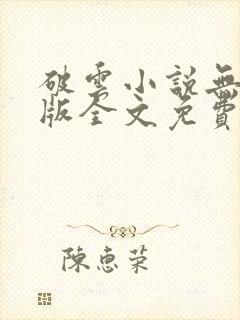 破雲小說無
版全文免費
陳惠榮